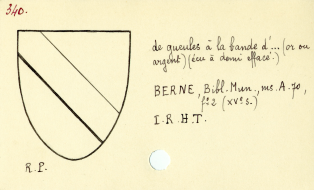 340.
de gueules à la bande d'... (or ou
argent) (écu à demi effacé.)
BERNE, Bibl. Mun., ms. A. 70,
f° 2 (XVe s.)
I. R. H. T.
R. P.